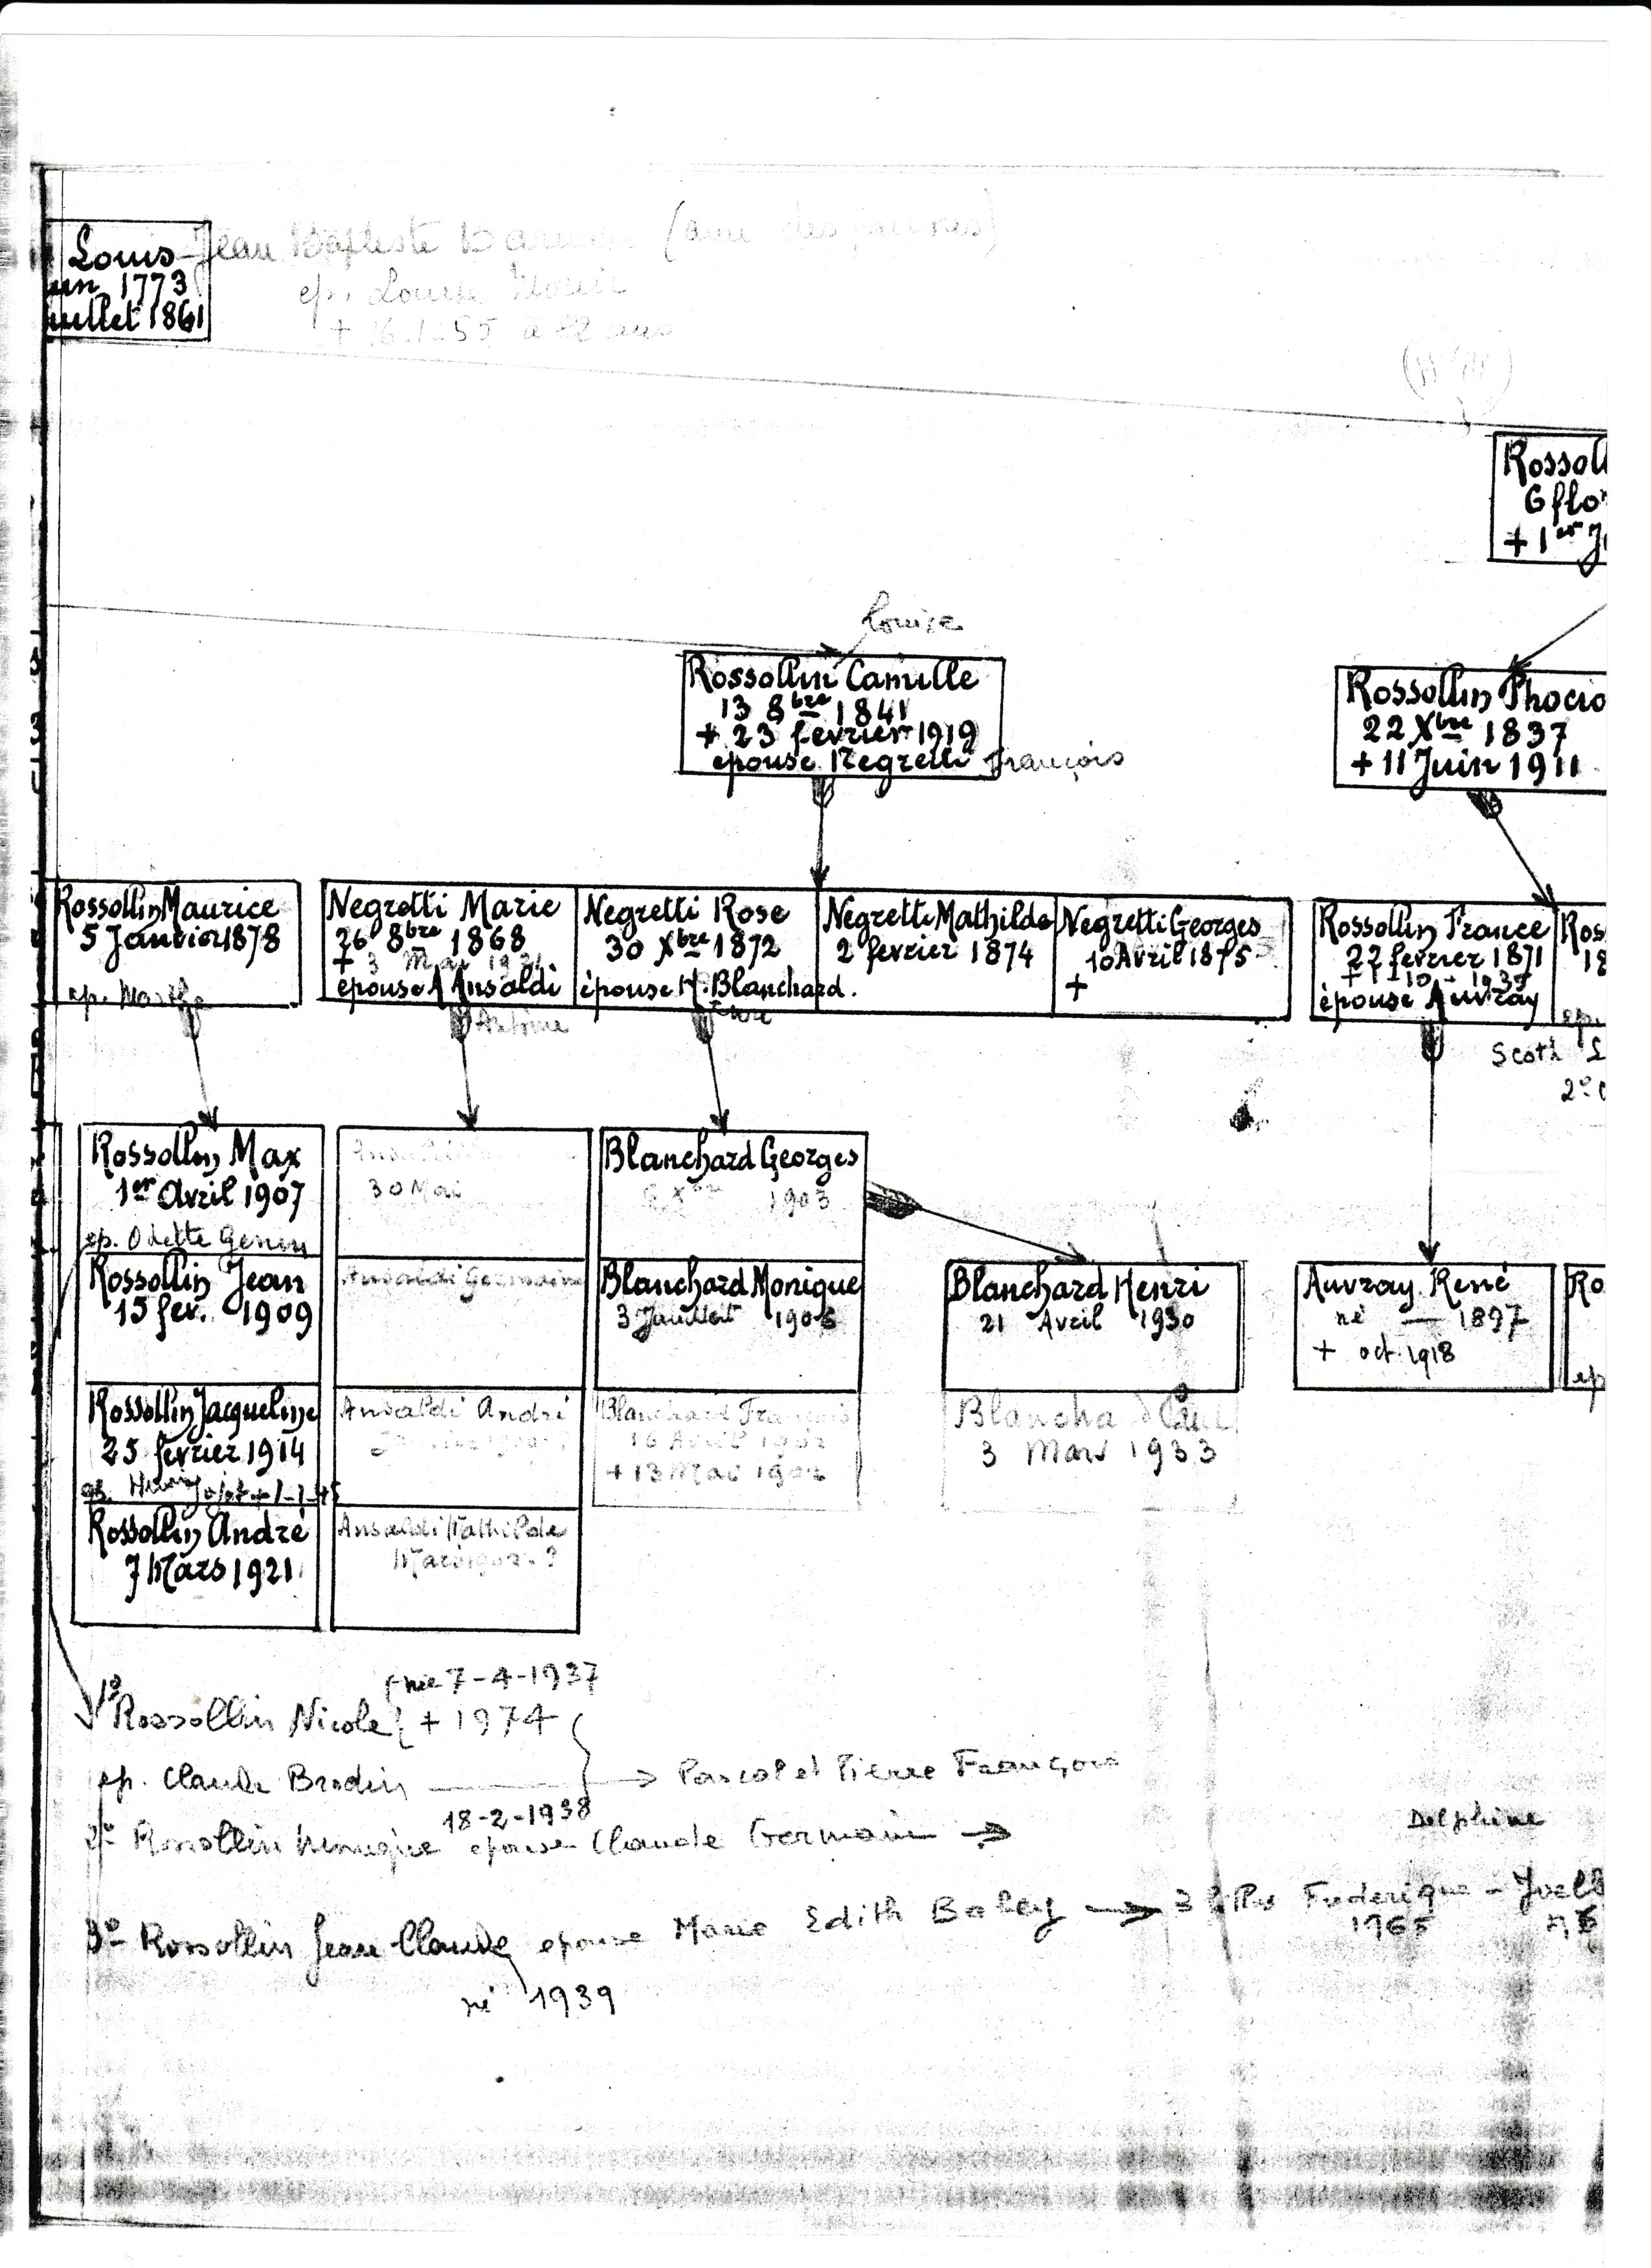 Louis
1773
uillet 1861
Jean Baptiste
ep. Louise
+ 16.1.55 à 82 ans
Rossoll
6 flo
+ 1er J
Louise
Rossollin Camille
13 8bre 1841
+ 23 fevrier 1919
epouse Negretti François
Rossollin Phocio
22 Xbre 1837
+ 11 Juin 1911
Rossollin Maurice
5 Janvier 1878
ep. Marthe
Negretti Marie
26 8bre 1868
+ 3
épouse A Ansaldi
Antoine
Negretti Rose
30 Xbre 1872
épouse H. Blanchard.
Negretti Mathilde
2 fevrier 1874
Negretti Georges
10 Avril 1875
+
Rossollin France
22 fevrier 1871
épouse Auvray
Ros
18
ep.
Scoth
2º
Rossollin Max
1er Avril 1907
ep. Odette Genin
Rossollin Jean
15 fev. 1909
Rossollin Jacqueline
25 fevrier 1914
Rossollin André
7 Mars 1921
30 Mai
Ansaldi Germaine
Ansaldi André
Ansaldi Mathilde
Blanchard Georges
1903
Blanchard Monique
Blanchard François
16 Avril
+ 13 Mai
Blanchard Henri
21 Avril 1930
3 Mars 1933
Auvray René
né — 1897
+ oct. 1918
Ro
ep
1º Rossollin Nicole
née 7-4-1937
+ 1974
ep. Claude Brodin → Pascal et Pierre François
18-2-1938
2º Rossollin epouse Claude Germain →
Delphine
3º Rossollin Jean-Claude epouse Marie Edith → 3 filles Frederique -
1965
né 1939